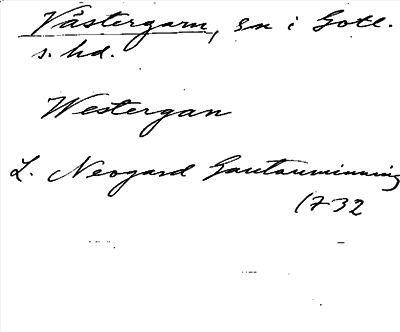 Västergarn, sn i Gotl.
s. hd.
Westergan
L. Neogard Gautauminning
1732